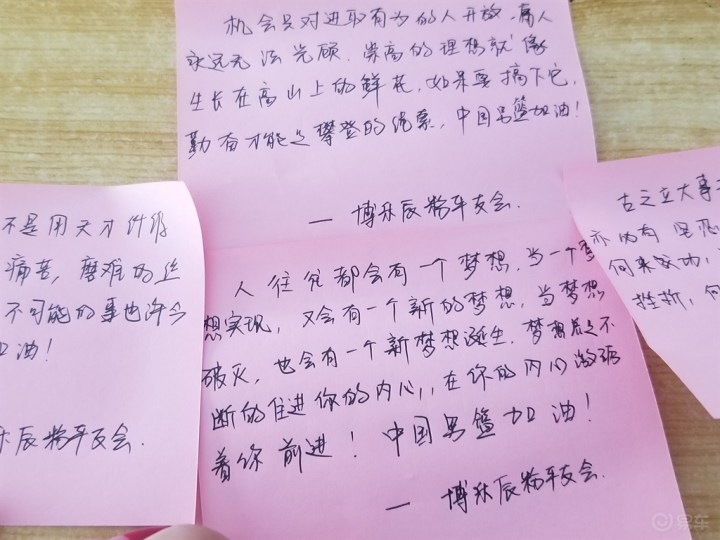 机会只对进取有为的人开放,庸人
永远无法光顾.崇高的理想就像
生长在高山上的鲜花,如果要搞下它,
勤奋才能是攀登的绳索,中国男篮加油!
— 博乐辰粉车友会.
人往往都会有一个梦想.当一个梦
想实现,又会有一个新的梦想,当梦想
破灭,也会有一个新梦想诞生.梦想总是不
断的住进你的内心,,在你的内心激励
着你前进!中国男篮加油!
— 博乐辰粉车友会.
不是用天才
痛苦,磨难的丝
不可能的事也许今
油!
乐辰粉车友会.
古之立大事
亦必有坚忍
何来成功,
挫折,何
易车